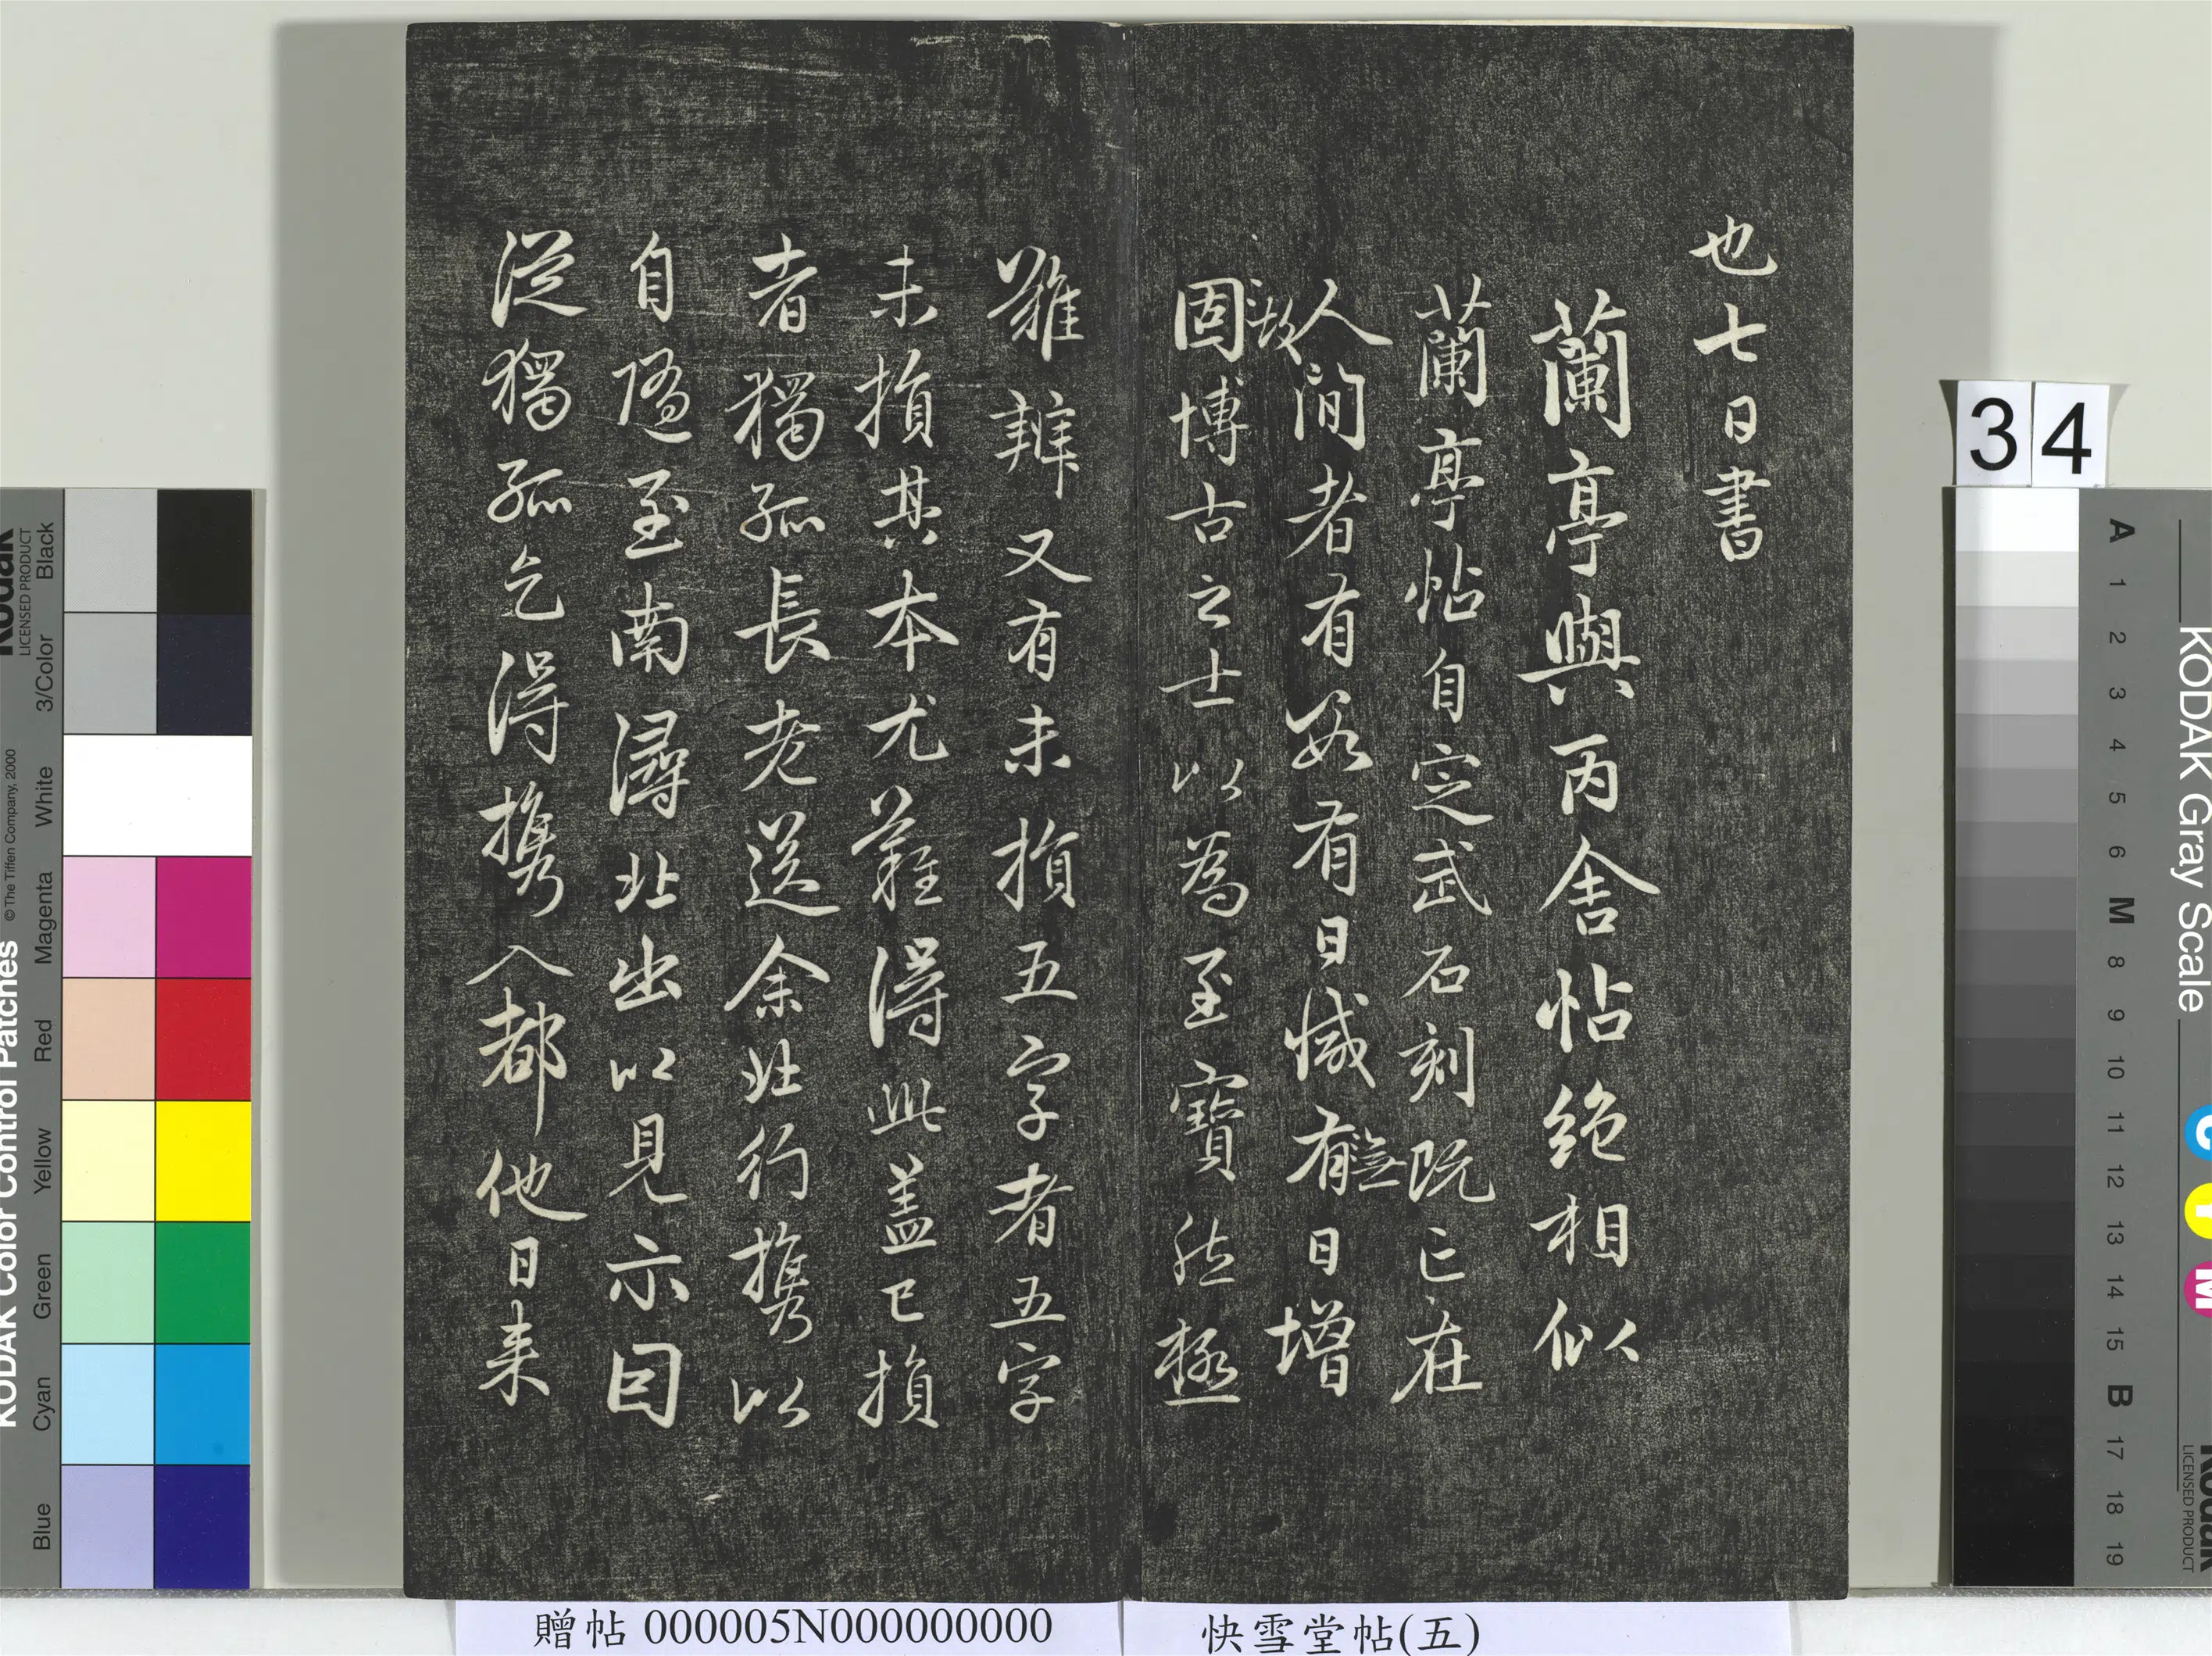 也七日書
蘭亭與丙舍帖絕相似
蘭亭帖自定武石刻既亡在
人間者有數有日減有無日增
故
固博古之士以為至寶然極
難辨又有未損五字者五字
未損其本尤難得此蓋已損
者獨孤長老送余北行攜以
自隨至南潯北出以見示因
從獨孤乞得攜入都他日來
34
KODAK Color Control Patches
Kodak
LICENSED PRODUCT
© The Tiffen Company, 2000
Blue Cyan Green Yellow Red Magenta White 3/Color Black
KODAK Gray Scale
A 1 2 3 4 5 6 M 8 9 10 11 12 13 14 15 B 17 18 19
C Y M
Kodak
LICENSED PRODUCT
贈帖 000005N000000000
快雪堂帖(五)